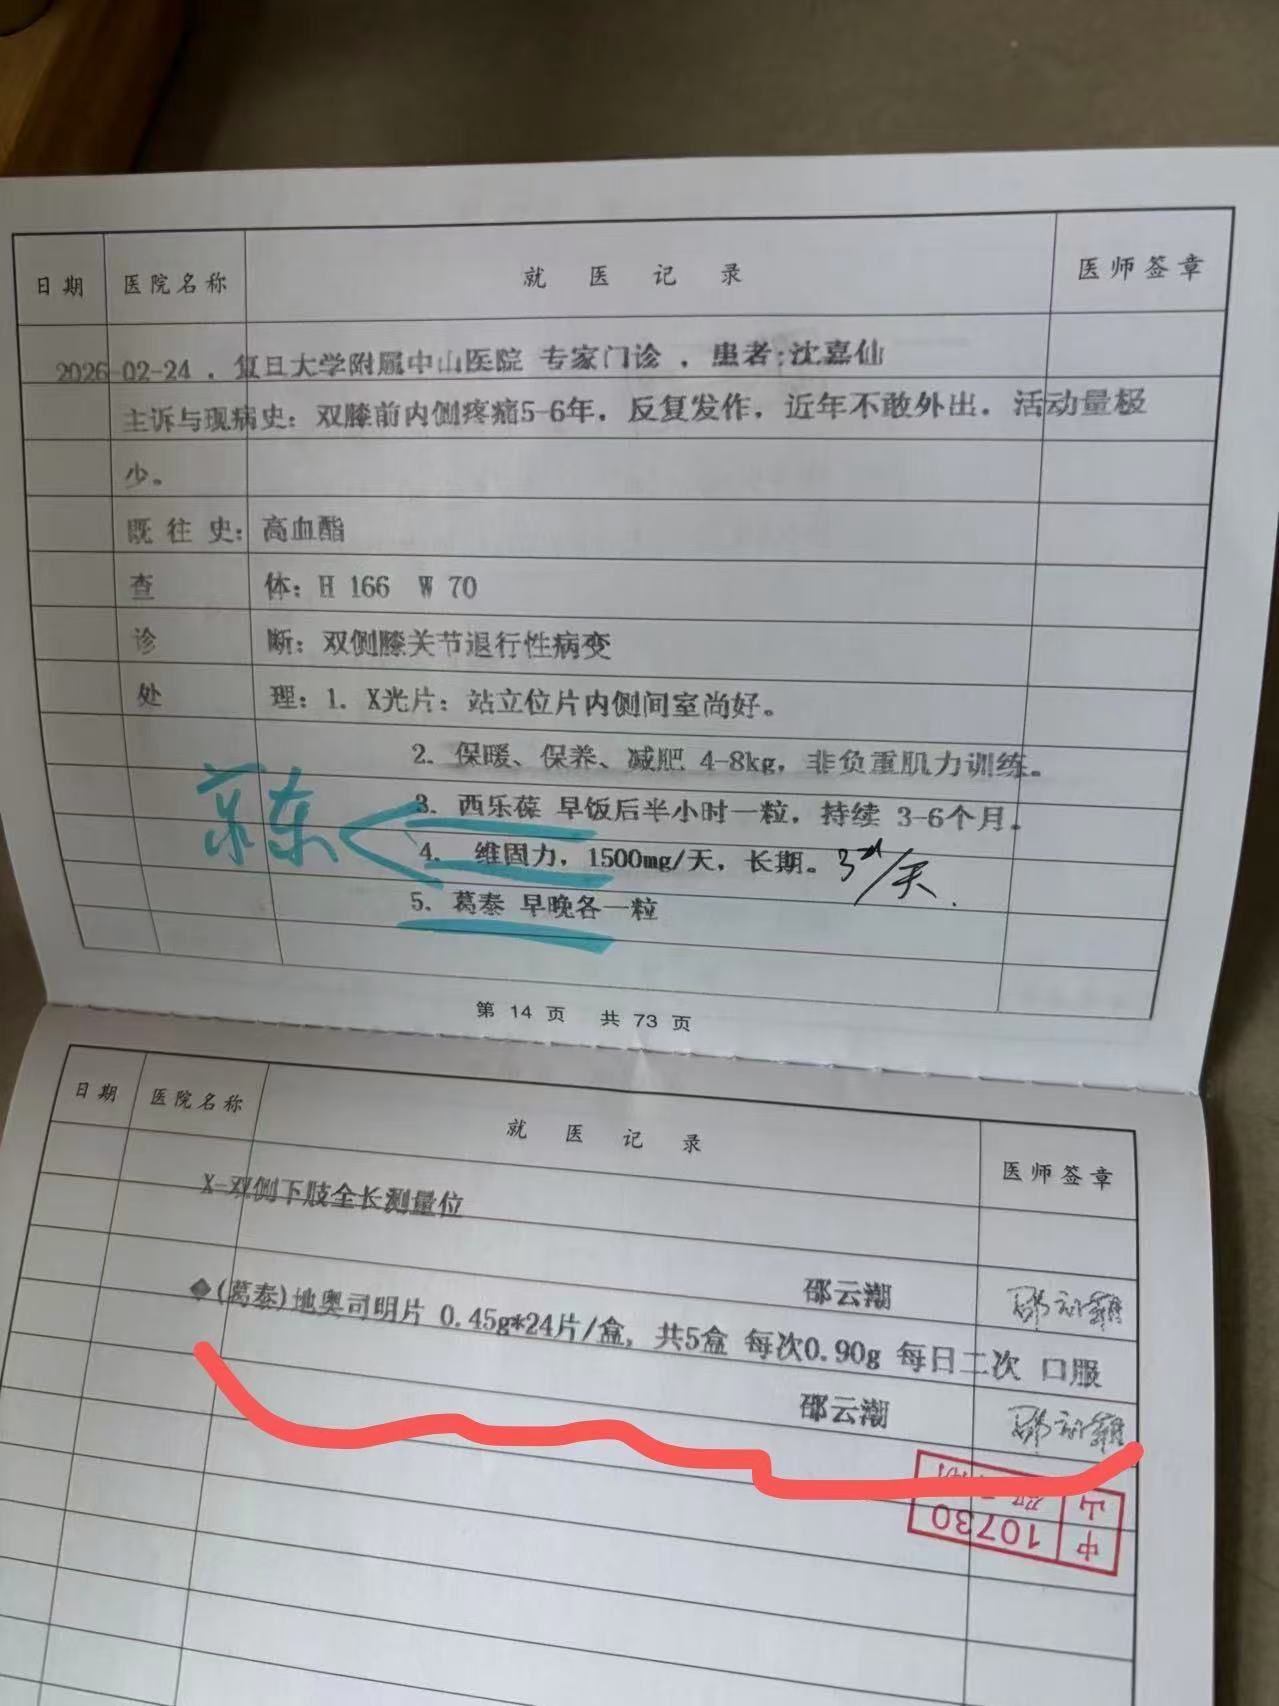 日期 医院名称 就医记录 医师签章
2026-02-24 . 复旦大学附属中山医院 专家门诊 . 患者:沈嘉仙
主诉与现病史: 双膝前内侧疼痛5-6年. 反复发作. 近年不敢外出. 活动量极
少。
既往史: 高血酯
查体: H 166 W 70
诊断: 双侧膝关节退行性病变
处理: 1. X光片: 站立位片内侧间室尚好。
2. 保暖、保养、减肥 4-8kg, 非负重肌力训练。
3. 西乐葆 早饭后半小时一粒, 持续 3-6个月。
京东
4. 维固力, 1500mg/天, 长期。 3 /天.
5. 葛泰 早晚各一粒
第 14 页 共 73 页
日期 医院名称 就医记录 医师签章
X-双侧下肢全长测量位
邵云潮
◆(葛泰)地奥司明片 0.45g*24片/盒, 共5盒 每次0.90g 每日二次 口服
邵云潮
中山 10730